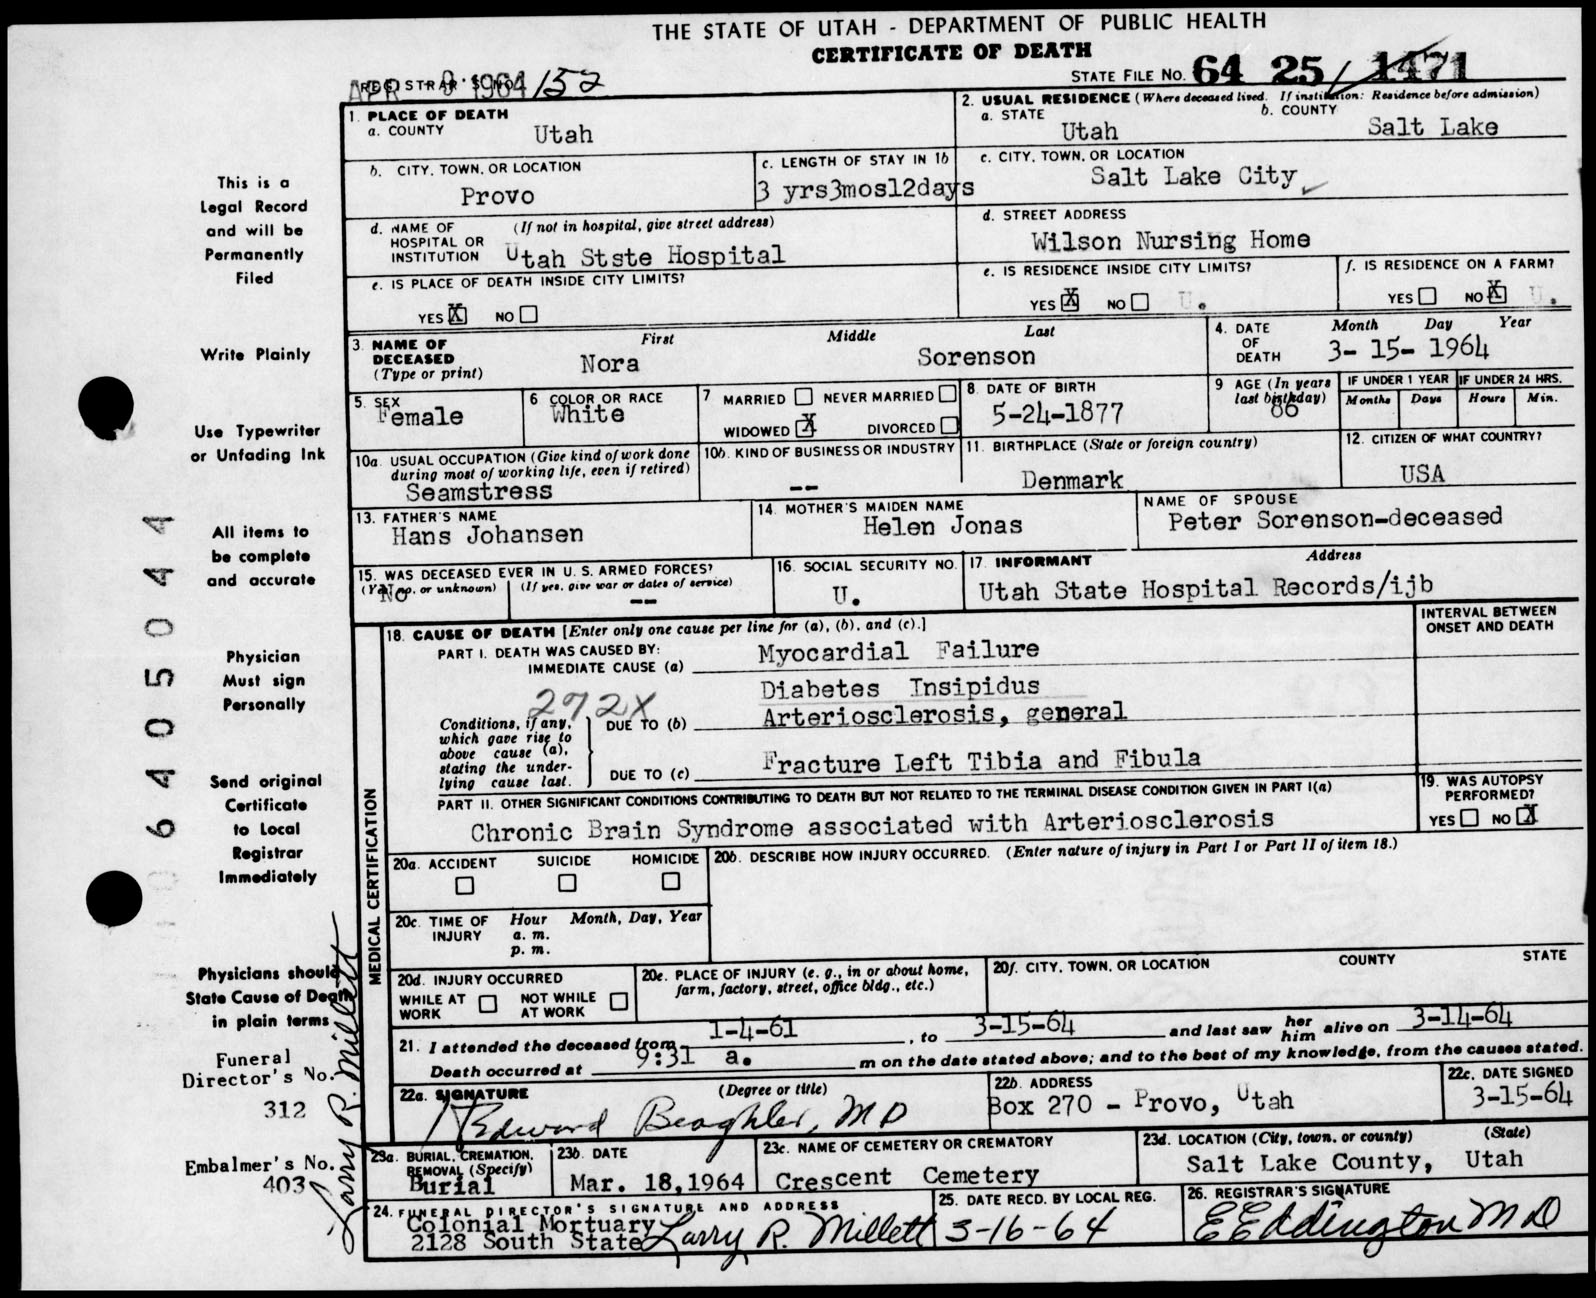 THE STATE OF UTAH - DEPARTMENT OF PUBLIC HEALTH
CERTIFICATE OF DEATH
STATE FILE NO. 64 25 1471
REGISTRAR'S NO. 152
APR 9 1964
1. PLACE OF DEATH
a. COUNTY Utah
2. USUAL RESIDENCE (Where deceased lived. If institution: Residence before admission)
a. STATE Utah b. COUNTY Salt Lake
b. CITY, TOWN, OR LOCATION Provo
c. LENGTH OF STAY IN 1b 3 yrs3mos12days
c. CITY, TOWN, OR LOCATION Salt Lake City
d. NAME OF HOSPITAL OR INSTITUTION (If not in hospital, give street address) Utah Stste Hospital
d. STREET ADDRESS Wilson Nursing Home
e. IS PLACE OF DEATH INSIDE CITY LIMITS?
YES X NO
e. IS RESIDENCE INSIDE CITY LIMITS?
YES X NO U.
f. IS RESIDENCE ON A FARM?
YES NO X U.
3. NAME OF DECEASED (Type or print) First Middle Last
Nora Sorenson
4. DATE OF DEATH Month Day Year
3- 15- 1964
5. SEX Female
6 COLOR OR RACE White
7 MARRIED NEVER MARRIED
WIDOWED X DIVORCED
8. DATE OF BIRTH 5-24-1877
9 AGE (In years last birthday) 86
IF UNDER 1 YEAR Months Days
IF UNDER 24 HRS. Hours Min.
10a. USUAL OCCUPATION (Give kind of work done during most of working life, even if retired)
Seamstress
10b. KIND OF BUSINESS OR INDUSTRY --
11. BIRTHPLACE (State or foreign country) Denmark
12. CITIZEN OF WHAT COUNTRY? USA
13. FATHER'S NAME Hans Johansen
14. MOTHER'S MAIDEN NAME Helen Jonas
NAME OF SPOUSE Peter Sorenson-deceased
15. WAS DECEASED EVER IN U. S. ARMED FORCES?
(Yes, no, or unknown) No (If yes, give war or dates of service) --
16. SOCIAL SECURITY NO. U.
17. INFORMANT Address
Utah State Hospital Records/ijb
MEDICAL CERTIFICATION
18. CAUSE OF DEATH [Enter only one cause per line for (a), (b), and (c).]
INTERVAL BETWEEN ONSET AND DEATH
PART I. DEATH WAS CAUSED BY:
IMMEDIATE CAUSE (a) Myocardial Failure
272X
Diabetes Insipidus
Conditions, if any, which gave rise to above cause (a), stating the underlying cause last.
DUE TO (b) Arteriosclerosis, general
DUE TO (c) Fracture Left Tibia and Fibula
PART II. OTHER SIGNIFICANT CONDITIONS CONTRIBUTING TO DEATH BUT NOT RELATED TO THE TERMINAL DISEASE CONDITION GIVEN IN PART I(a)
Chronic Brain Syndrome associated with Arteriosclerosis
19. WAS AUTOPSY PERFORMED?
YES NO X
20a. ACCIDENT SUICIDE HOMICIDE
20b. DESCRIBE HOW INJURY OCCURRED. (Enter nature of injury in Part I or Part II of item 18.)
20c. TIME OF INJURY Hour a. m. p. m. Month, Day, Year
20d. INJURY OCCURRED
WHILE AT WORK NOT WHILE AT WORK
20e. PLACE OF INJURY (e. g., in or about home, farm, factory, street, office bldg., etc.)
20f. CITY, TOWN, OR LOCATION COUNTY STATE
21. I attended the deceased from 1-4-61, to 3-15-64 and last saw her him alive on 3-14-64
Death occurred at 9:31 a. m on the date stated above; and to the best of my knowledge, from the causes stated.
22a. SIGNATURE (Degree or title)
Edward Beaghler, MD
22b. ADDRESS Box 270 - Provo, Utah
22c. DATE SIGNED 3-15-64
23a. BURIAL, CREMATION, REMOVAL (Specify) Burial
23b. DATE Mar. 18,1964
23c. NAME OF CEMETERY OR CREMATORY Crescent Cemetery
23d. LOCATION (City, town, or county) (State)
Salt Lake County, Utah
24. FUNERAL DIRECTOR'S SIGNATURE AND ADDRESS
Colonial Mortuary
2128 South State Larry R. Millett
25. DATE RECD. BY LOCAL REG. 3-16-64
26. REGISTRAR'S SIGNATURE
E E Eddington MD
This is a
Legal Record
and will be
Permanently
Filed
Write Plainly
Use Typewriter
or Unfading Ink
All items to
be complete
and accurate
Physician
Must sign
Personally
Send original
Certificate
to Local
Registrar
Immediately
Physicians should
State Cause of Death
in plain terms
Funeral
Director's No.
312
Embalmer's No.
403
Larry R. Millett
6405044